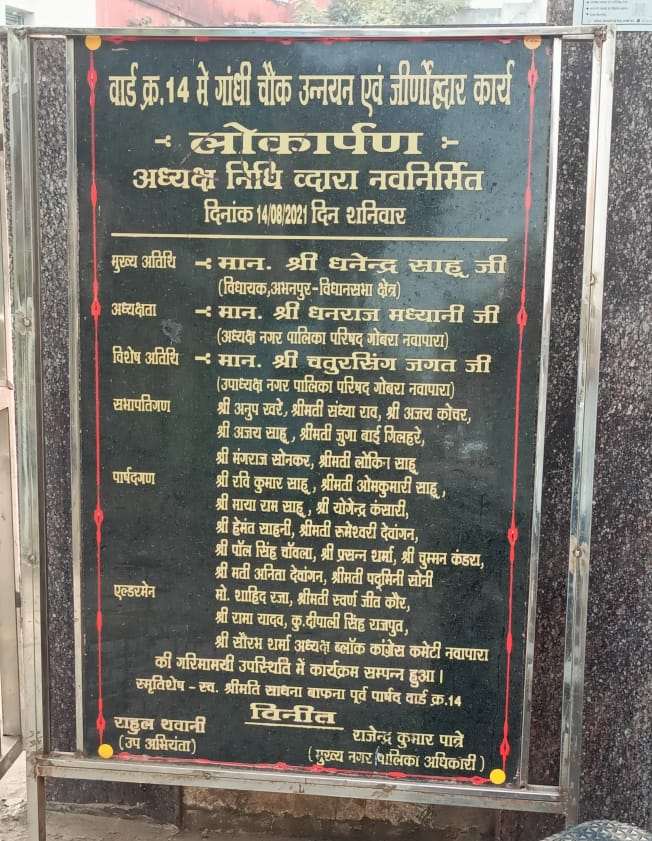 वार्ड क्र.14 मे गांधी चौक उन्नयन एवं जीर्णोद्धार कार्य
-: लोकार्पण :-
अध्यक्ष निधि व्दारा नवनिर्मित
दिनांक 14/08/2021 दिन शनिवार
मुख्य अतिथि -: मान. श्री धनेन्द्र साहू जी
(विधायक,अभनपुर-विधानसभा क्षेत्र)
अध्यक्षता -: मान. श्री धनराज मध्यानी जी
(अध्यक्ष नगर पालिका परिषद गोबरा नवापारा)
विशेष अतिथि -: मान. श्री चतुरसिंग जगत जी
(उपाध्यक्ष नगर पालिका परिषद गोबरा नवापारा)
सभापतिगण श्री अनुप खरे, श्रीमती संध्या राव, श्री अजय कोचर,
श्री अजय साहू , श्रीमती जुगा बाई गिलहरे,
श्री मंगराज सोनकर, श्रीमती लोकिन साहू
पार्षदगण श्री रवि कुमार साहू , श्रीमती ओमकुमारी साहू ,
श्री माया राम साहू , श्री योगेन्द्र कंसारी,
श्री हेमंत साहनी, श्रीमती रूमेश्वरी देवांगन,
श्री पॉल सिंह चॉवला, श्री प्रसन्न शर्मा, श्री चुम्मन कंडरा,
श्री मती अनिता देवांगन, श्रीमती पद्मिनी सोनी
एल्डरमेन मो. शाहिद रजा, श्रीमती स्वर्ण जीत कौर,
श्री रामा यादव, कु.दीपाली सिंह राजपुत,
श्री सौरभ शर्मा अध्यक्ष ब्लॉक कांग्रेस कमेटी नवापारा
की गरिमामयी उपस्थिति में कार्यक्रम सम्पन्न हुआ ।
स्मृतिशेष - स्व. श्रीमति साधना बाफना पूर्व पार्षद वार्ड क्र.14
विनीत
राहुल थवानी राजेन्द्र कुमार पात्रे
(उप अभियंता) (मुख्य नगर पालिका अधिकारी)